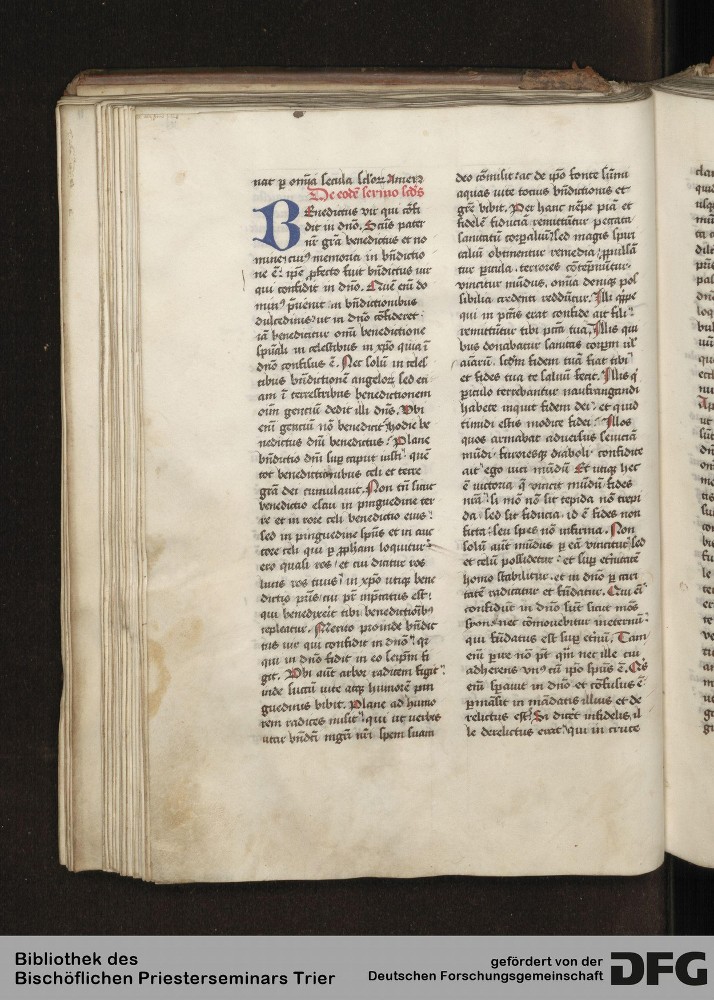 nat p om̄ia secula sclōrꝫ Amen
De eodē sermo scds
Benedictus vir qui cōfi
dit in dn̄o. Scūs pater
nr̄ grā benedictus et no
mine cuiꝰ memoria in bn̄dictio
ne ē. ip̄e ꝓfecto fuit bn̄dictus vir
qui confidit in dn̄o. Quē em̄ do
minꝰ p̄uenit in bn̄dictionibus
dulcedinis ut in dn̄o cōfideret
iā benedicitur om̄i benedictione
sp̄uali in celestibus in xp̄o quia ī
dn̄o confisus ē. Nec solū in celes
tibus bn̄dictionē angeloꝝ sed eti
am ī terrestribus benedictionem
oīm gentiū dedit illi dn̄s. Vbi
em̄ gentiū nō benedicit hodie be
nedictus dn̄i benedictus? Plane
bn̄dictio dn̄i suꝑ caput iusti quē
tot benedictionibus celi et terre
grā dei cumulauit. Non tm̄ sicut
benedictio esau in pinguedine ter
re et in rore celi benedictio eius
sed in pinguedine sp̄us et in auc
tore celi qui p ꝓpham loquitur
ero quasi ros et cui dicitur ros
lucis ros tuus in xp̄o utiqꝫ bene
dictio pr̄is cui p̄t inp̄catus est
qui benedixit tibi benedictiōibꝰ
repleatur. Merito proinde bn̄dic
tus vir qui confidit in dn̄o qꝛ
qui in dn̄o fidit in eo seip̄m fi
git. Vbi aūt arbor radicem figit
inde succū vite atqꝫ humorē pin
guedinis bibit. Plane ad humo
rem radices misit qui ut verbis
utar bn̄dcī mgrī nr̄i spem suam
deo cōmisit ac de ip̄o fonte sūmi
aquas vite totius bn̄dictionis et
grē bibit. Per hanc nēpe piā et
fidelē fiduciā remittūtur peccata
sanitatū corꝑaliū sed magis spiri
taliū obtinentur remedia ꝓpulsā
tur picula. terrores cōtēpnūtur
vincitur mūdus. om̄ia deniqꝫ pos
sibilia credenti reddūtur. Illi q̄ppe
qui in pctīs erat confide ait fili
remittūtur tibi pctā tua. Illis qui
bus donabatur sanitas corꝑm ul
aīarū. scdm fidem tuā fiat tibi
et fides tua te saluū fecit. Illis q̄
piculo terrebantur naufragandi
habete inquit fidem dei et quid
timidi estis modice fidei. Illos
quos armabat aduersus seuiciā
mūdi furoresqꝫ diaboli confidite
ait ego vici mūdū Et utiqꝫ hec
ē victoria q̄ vincit mūdū fides
nr̄a si mō nō sit tepida nō trepi
da sed sit fiducia. id ē fides non
ficta seu spes nō infirma. Non
solū aūt mūdus p eā vincitur sed
et celū possidetur et suꝑ etn̄itatē
homo stabilitur. et in dn̄o p cari
tatē radicatur et fūdatur. Qui em̄
confidūt in dn̄o sūt sicut mōs
syon nec cōmouebitur ineternū
qui fūdatus est suꝑ etn̄ū. Tam
em̄ pire nō p̄t qm̄ nec ille cui
adherens vnꝰ cū ip̄o sp̄us ē. Q̄s
em̄ sperauit in dn̄o et cōfusus ē
pmāsit in mādatis illius et de
relictus est? Sa dicet infidelis il
le derelictus erat qui in cruce
Bibliothek des
Bischöflichen Priesterseminars Trier
gefördert von der
Deutschen Forschungsgemeinschaft
DFG